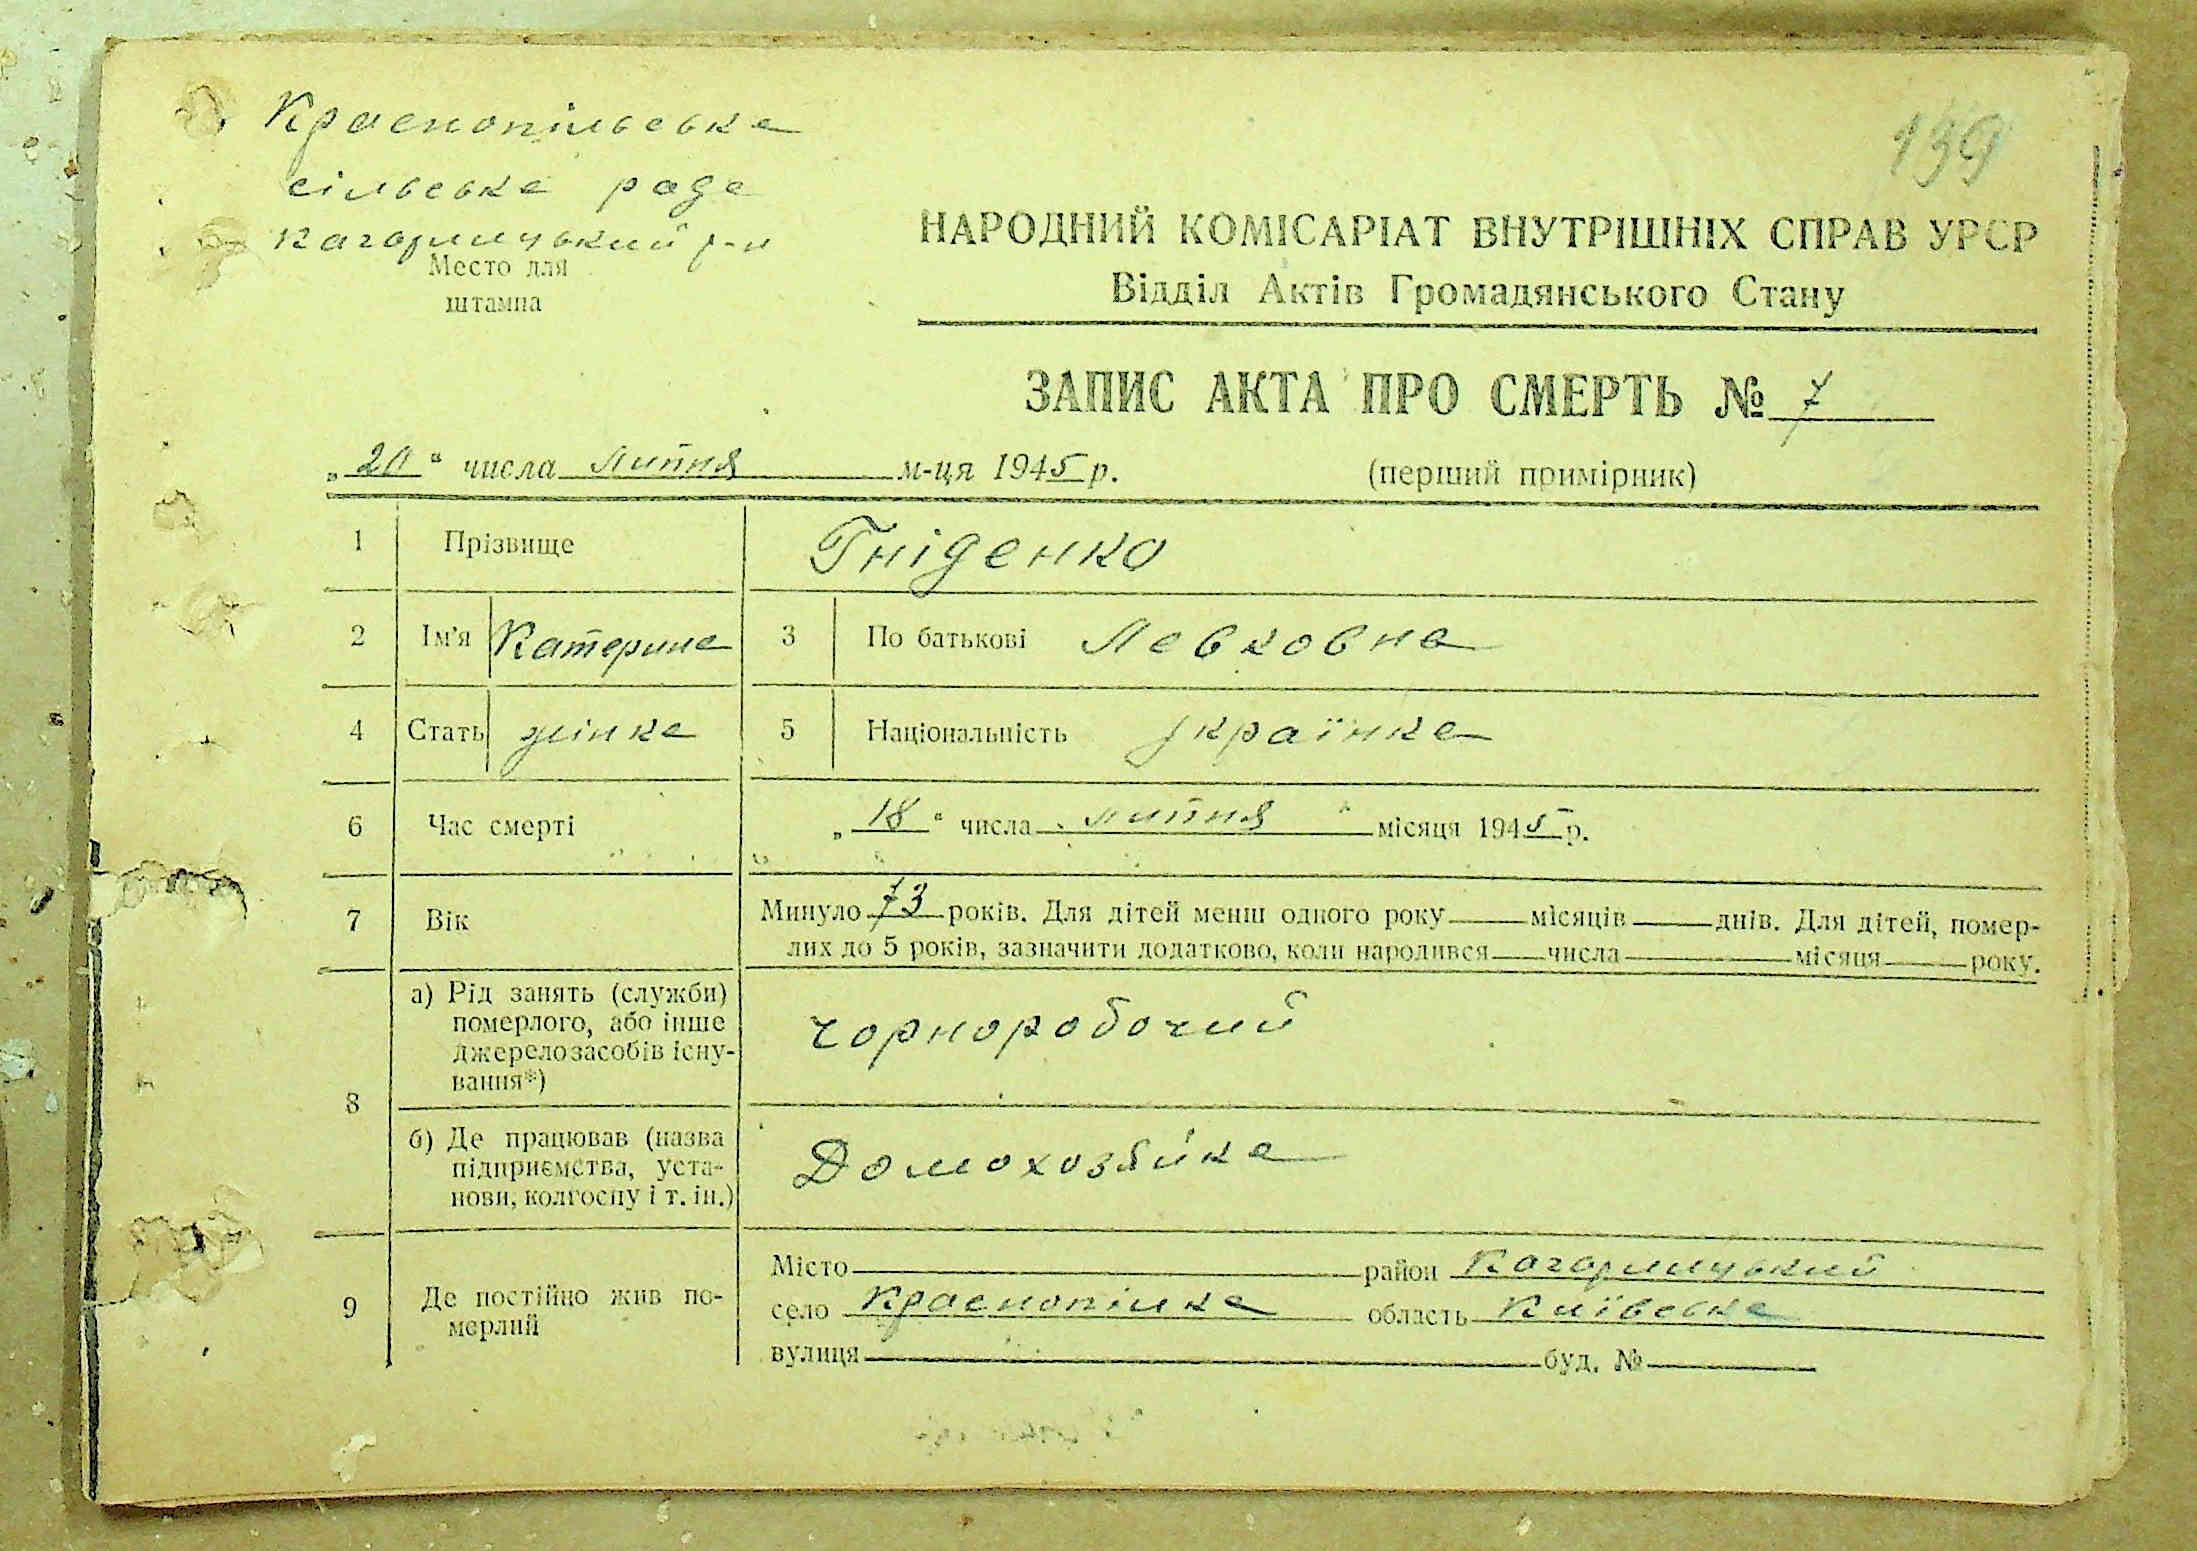 Краснопільська
139
сільська рада
Кагарлицький р-н
Место для
штампа
НАРОДНИЙ КОМІСАРІАТ ВНУТРІШНІХ СПРАВ УРСР
Відділ Актів Громадянського Стану
ЗАПИС АКТА ПРО СМЕРТЬ № 7
„20“ числа липня м-ця 1945 р. (перший примірник)
1 Прізвище Гніденко
2 Ім'я Катерина 3 По батькові Левковна
4 Стать жінка 5 Національність українка
6 Час смерті „18“ числа липня місяця 1945 р.
7 Вік Минуло 73 років. Для дітей менш одного року місяців днів. Для дітей, помер-
лих до 5 років, зазначити додатково, коли народився числа місяця року.
8 а) Рід занять (служби)
померлого, або інше
джерело засобів існу-
вання*)
чорноробочий
б) Де працював (назва
підприємства, уста-
нови, колгоспу і т. ін.)
Домохозяйка
9 Де постійно жив по-
мерлий
Місто район Кагарлицький
село Краснопілка область Київська
вулиця буд. №